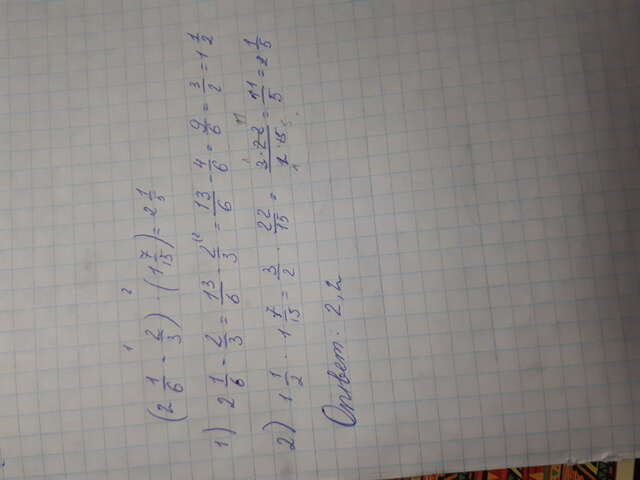 (2 1/6 - 2/3) · (1 7/15) = 2 1/5
1) 2 1/6 - 2/3 = 13/6 - 2/3 = 13/6 - 4/6 = 9/6 = 3/2 = 1 1/2
2) 1 1/2 · 1 7/15 = 3/2 · 22/15 = 3·22/2·15 = 11/5 = 2 1/5
Ответ: 2,2